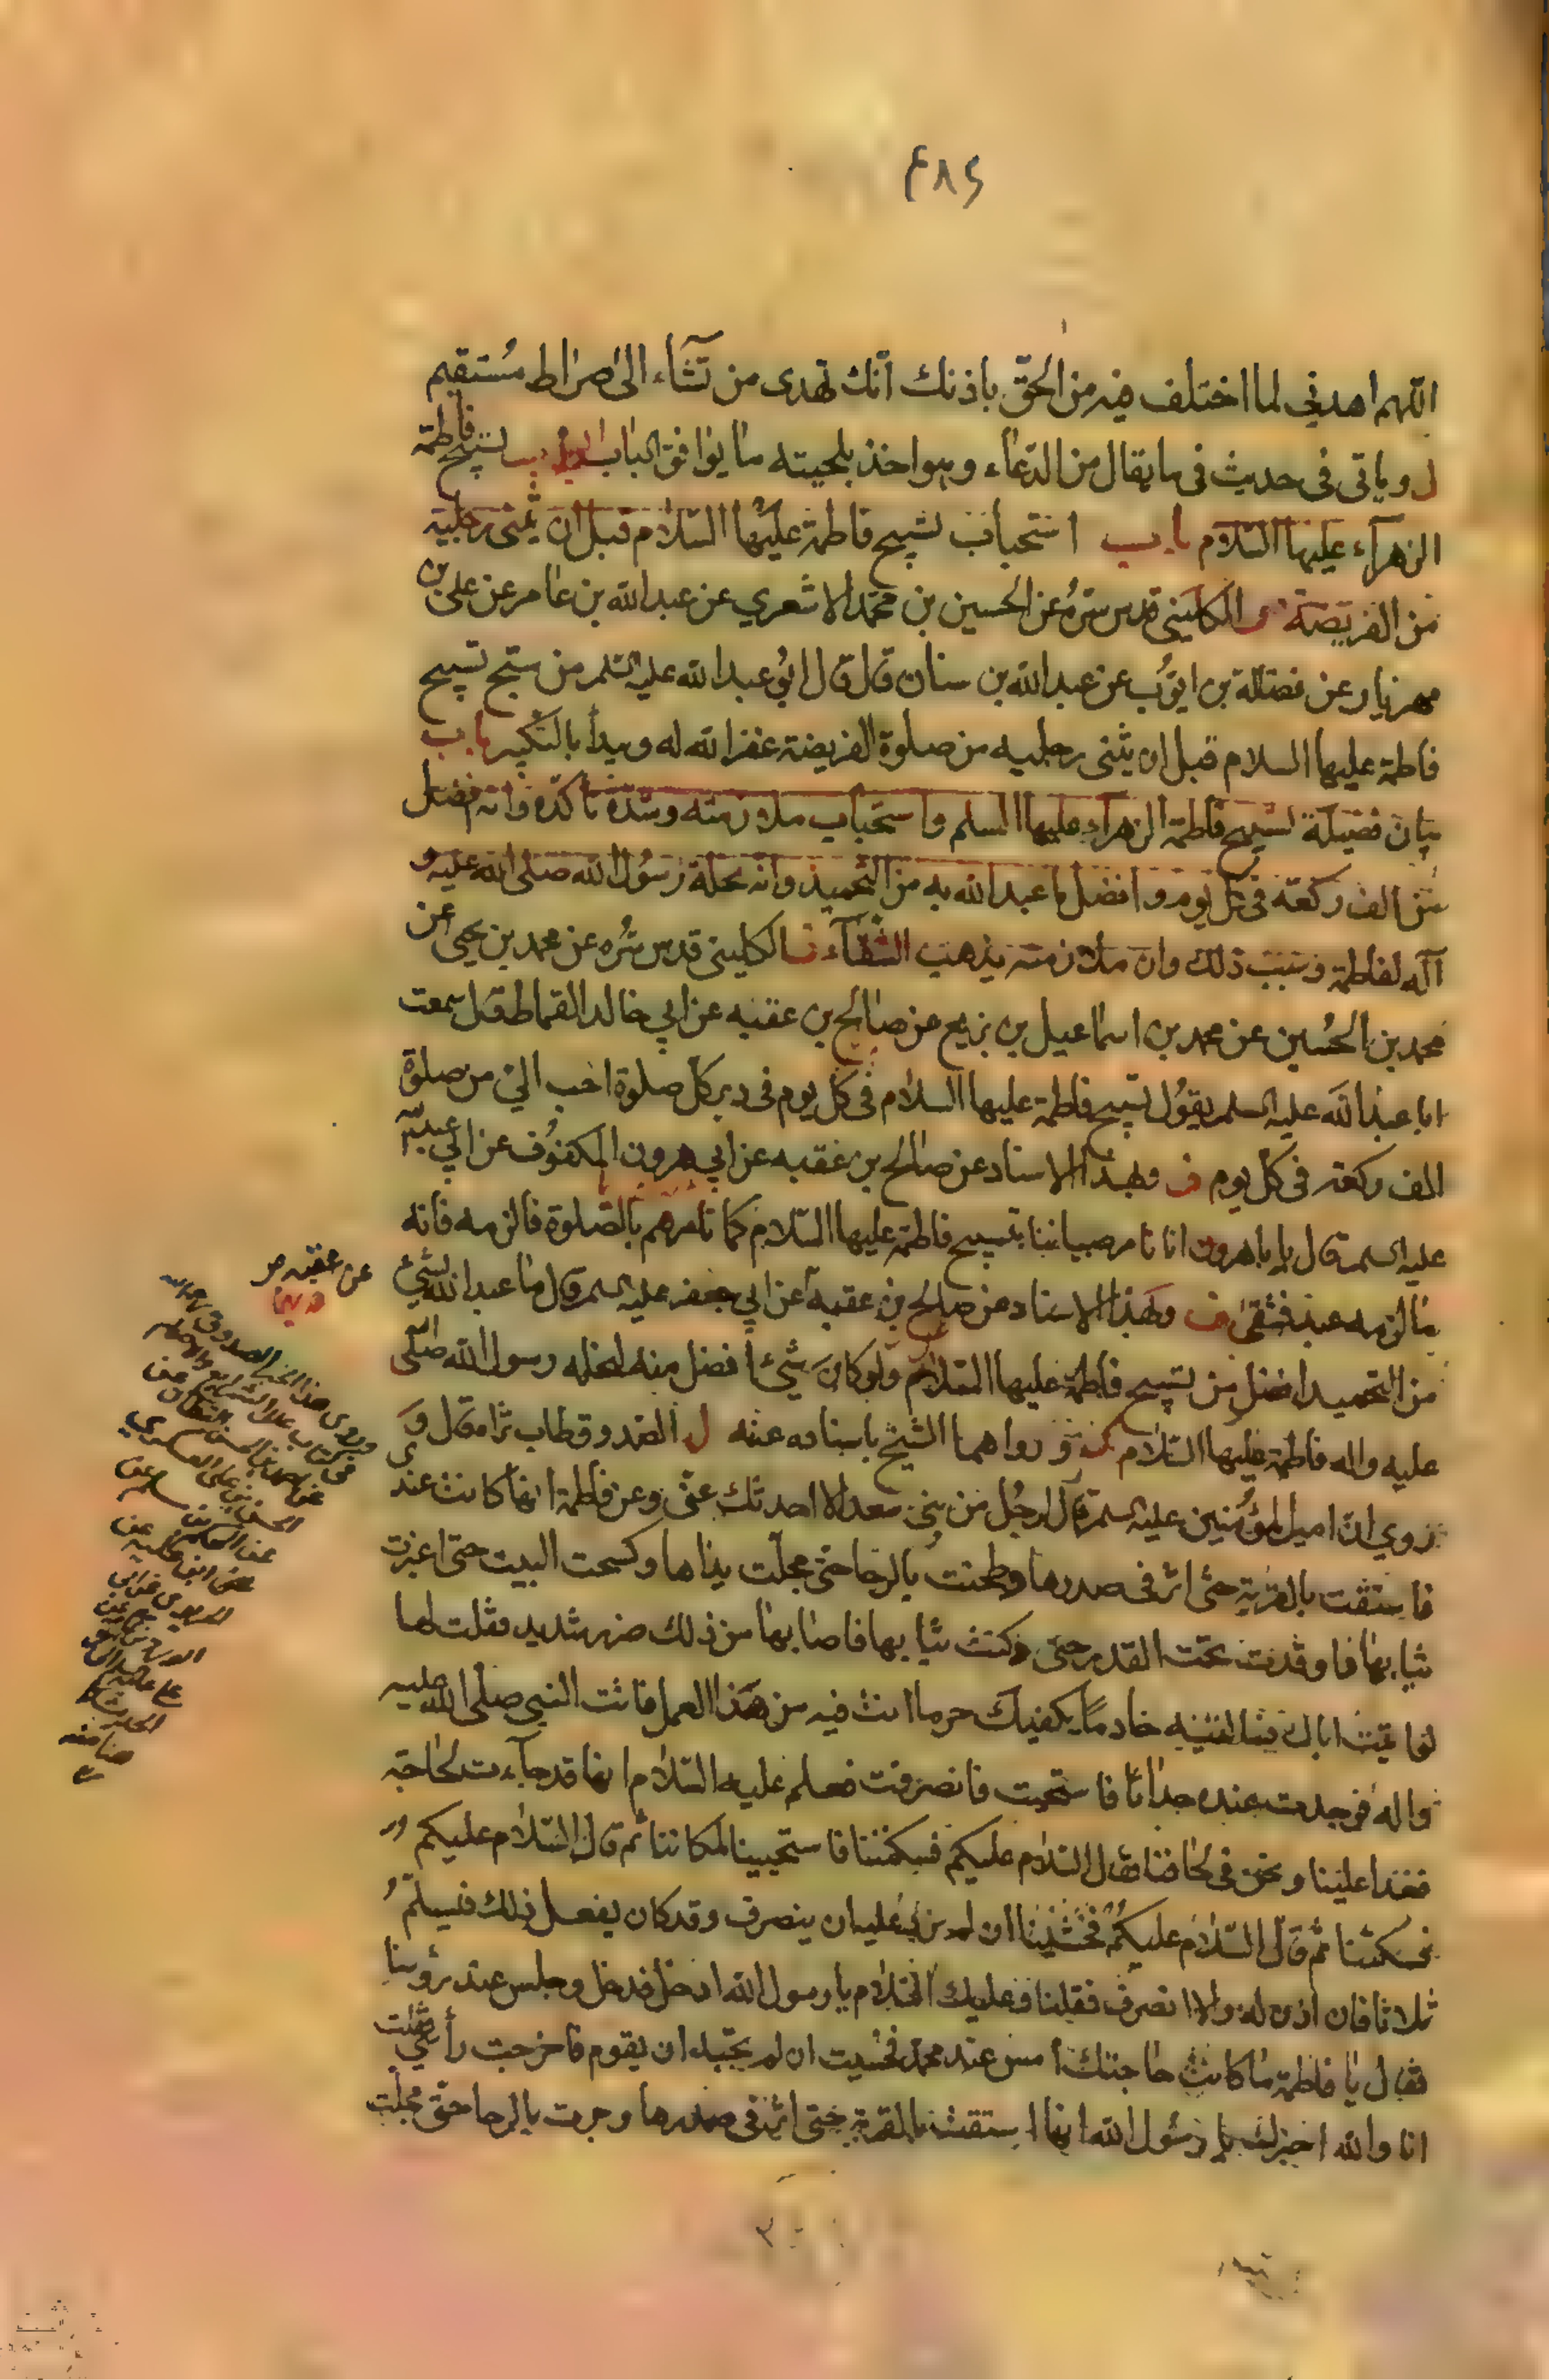 ٤٨٢
اللهم اهدني لما اختلف فيه من الحق باذنك انك تهدى من تشاء الى صراط مستقيم
ل وياتى فى حديث فى ما يقال من الدعاء وهو اخذ بلحيته ما يوافق الباب تسبيح فاطمة
الزهراء عليها السلام باب استحباب تسبيح فاطمة عليها السلام قبل ان يثنى رجليه
من الفريضة الكلينى قدس سره عن الحسين بن محمد الاشعري عن عبد الله بن عامر عن على بن
مهزيار عن فضالة بن ايوب عن عبد الله بن سنان قال قال ابو عبد الله عليه السلم من سبح تسبيح
فاطمة عليها السلام قبل ان يثنى رجليه من صلوة الفريضة غفر الله له ويبدأ بالتكبير باب
بيان فضيلة تسبيح فاطمة الزهراء عليها السلم واستحباب ملازمته وشدة تاكده وانه افضل
من الف ركعة فى كل يوم وافضل ما عبد الله به من التحميد وانه نحلة رسول الله صلى الله عليه و
آله لفاطمة وسبب ذلك وان ملازمته يذهب الشقاء الكلينى قدس سره عن محمد بن يحيى عن
محمد بن الحسين عن محمد بن اسماعيل بن بزيع عن صالح بن عقبه عن ابي خالد القماط قال سمعت
ابا عبد الله عليه السلم يقول تسبيح فاطمة عليها السلام فى كل يوم فى دبر كل صلوة احب الي من صلوة
الف ركعة فى كل يوم ف وبهذا الاسناد عن صالح بن عقبه عن ابي هرون المكفوف عن ابي عبد الله
عليه السلم قال يا با هرون انا نامر صبياننا بتسبيح فاطمة عليها السلام كما نامرهم بالصلوة فالزمه فانه
ما لزمه عبد فشقى ف وبهذا الاسناد عن صالح بن عقبه عن ابي جعفر عليه السلم قال ما عبد الله بشئ
من التحميد افضل من تسبيح فاطمة عليها السلام ولو كان شئ افضل منه لنحله رسول الله صلى الله
عليه واله فاطمة عليها السلام ورواهما الشيخ باسناده عنه ل الصدوق طاب ثراه قال و
روي ان امير المؤمنين عليه السلم قال لرجل من بنى سعد الا احدثك عنى وعن فاطمة انها كانت عندى
فاستقت بالقربة حتى اثر فى صدرها وطحنت بالرحا حتى مجلت يداها وكسحت البيت حتى اغبرت
ثيابها فاوقدت تحت القدر حتى دكنت ثيابها فاصابها من ذلك ضر شديد فقلت لها
لو اتيت اباك خادما يكفيك حر ما انت فيه من هذا العمل فاتت النبي صلى الله عليه
واله فوجدت عنده حداثا فاستحيت فانصرفت فعلم عليه السلام انها قد جاءت لحاجة
فغدا علينا ونحن فى لحافنا فقال السلام عليكم فسكتنا فاستحيينا لمكاننا ثم قال السلام عليكم
فسكتنا ثم قال السلام عليكم فخشينا ان لم نرد عليه ان ينصرف وقد كان يفعل ذلك فيسلم
ثلاثا فان اذن له والا انصرف فقلنا وعليك السلام يا رسول الله ادخل فدخل وجلس عند رؤسنا
فقال يا فاطمة ما كانت حاجتك امس عند محمد فخشيت ان لم نجبه ان يقوم فاخرجت رأسي فقلت
انا والله اخبرك يا رسول الله انها استقت بالقربة حتى اثر فى صدرها وجرت بالرحا حتى مجلت
عن عقبه